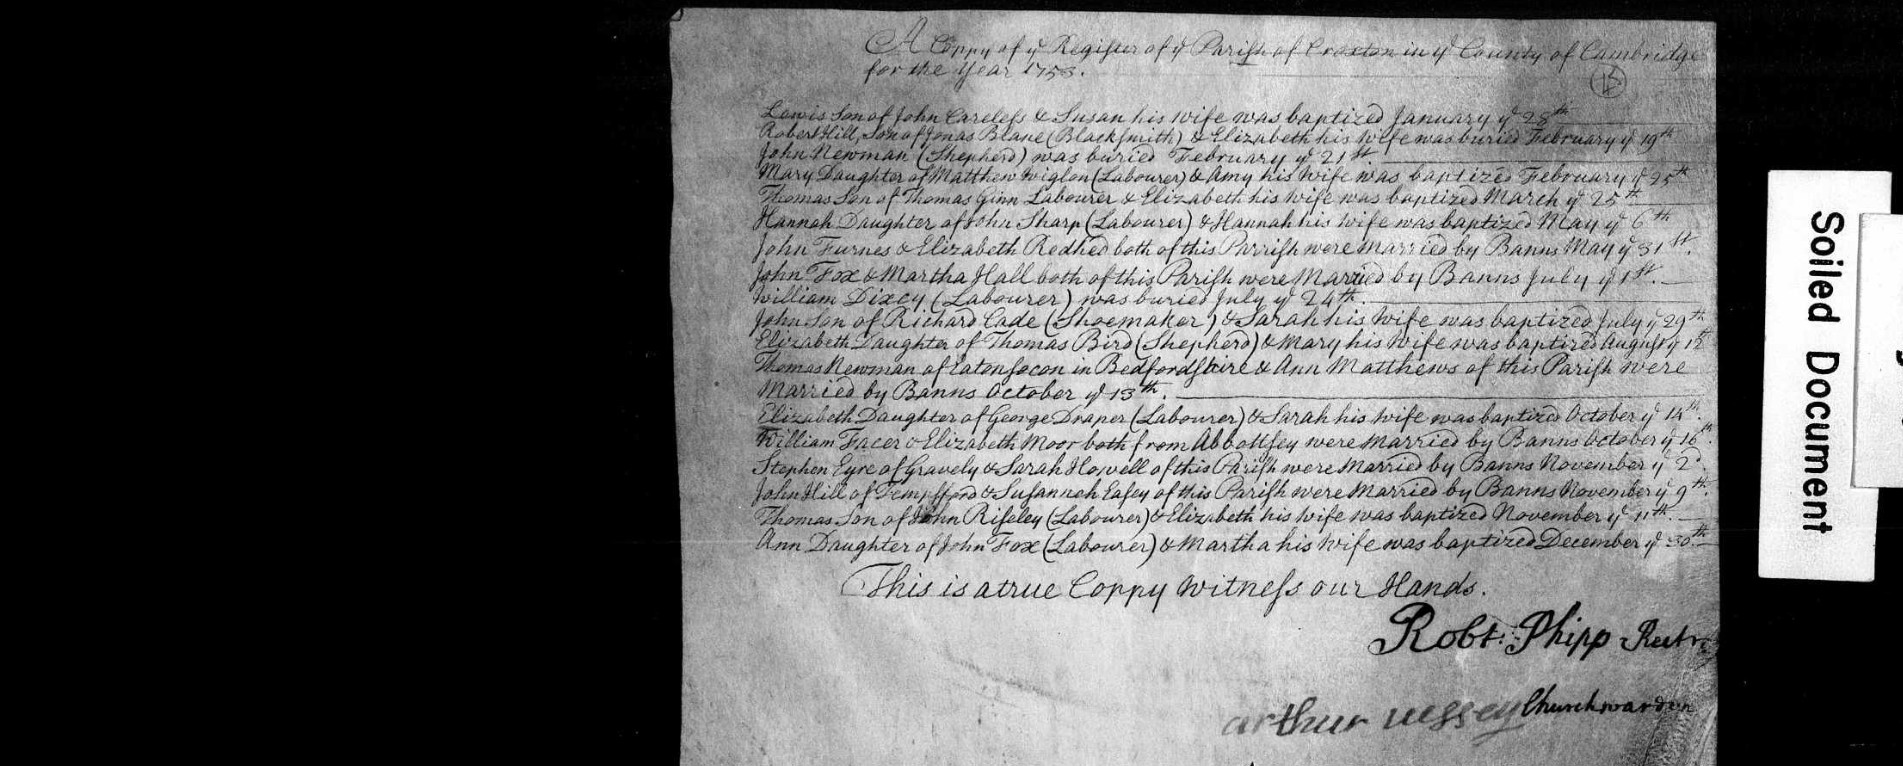 A Coppy of yᵉ Register of yᵉ Parish of Croxton in yᵉ County of Cambridge
for the Year 1753.
Lewis Son of John Careless & Susan his wife was baptized January yᵉ 28th
Robert Hill, Son of Jonas Beane (Blacksmith) & Elizabeth his wife was buried February yᵉ 19th
John Newman (Shepherd) was buried February yᵉ 21st.
Mary Daughter of Matthew (Labourer) & Amy his Wife was baptized February yᵉ 25th
Thomas Son of Thomas Ginn Labourer & Elizabeth his wife was baptized March yᵉ 25th
Hannah Daughter of John Sharp (Labourer) & Hannah his wife was baptized May yᵉ 6th
John Furnes & Elizabeth Redhed both of this Parrish were Married by Banns May yᵉ 31st.
John Fox & Martha Hall both of this Parish were Married by Banns July yᵉ 1st.
William Dixcy (Labourer) was buried July yᵉ 24th.
John Son of Richard Cade (Shoemaker) & Sarah his wife was baptized July yᵉ 29th
Elizabeth Daughter of Thomas Bird (Shepherd) & Mary his Wife was baptized August yᵉ 12
Thomas Newman of Eatonsocon in Bedfordshire & Ann Matthews of this Parish were
Married by Banns October yᵉ 13th.
Elizabeth Daughter of George Draper (Labourer) & Sarah his wife was baptized October yᵉ 14th.
William Facer & Elizabeth Moor both from Abbottsley were Married by Banns October yᵉ 16th.
Stephen Eyre of Gravely & Sarah Howell of this Parish were Married by Banns November yᵉ 2d.
John Hill of Tempsford & Susannah Easey of this Parish were Married by Banns November yᵉ 9th.
Thomas Son of John Riseley (Labourer) & Elizabeth his wife was baptized November yᵉ 11th.
Ann Daughter of John Fox (Labourer) & Martha his Wife was baptized December yᵉ 30th
This is a true Coppy Witness our Hands.
Robt. Phipp Rectr
arthur Churchwarden
Soiled Document